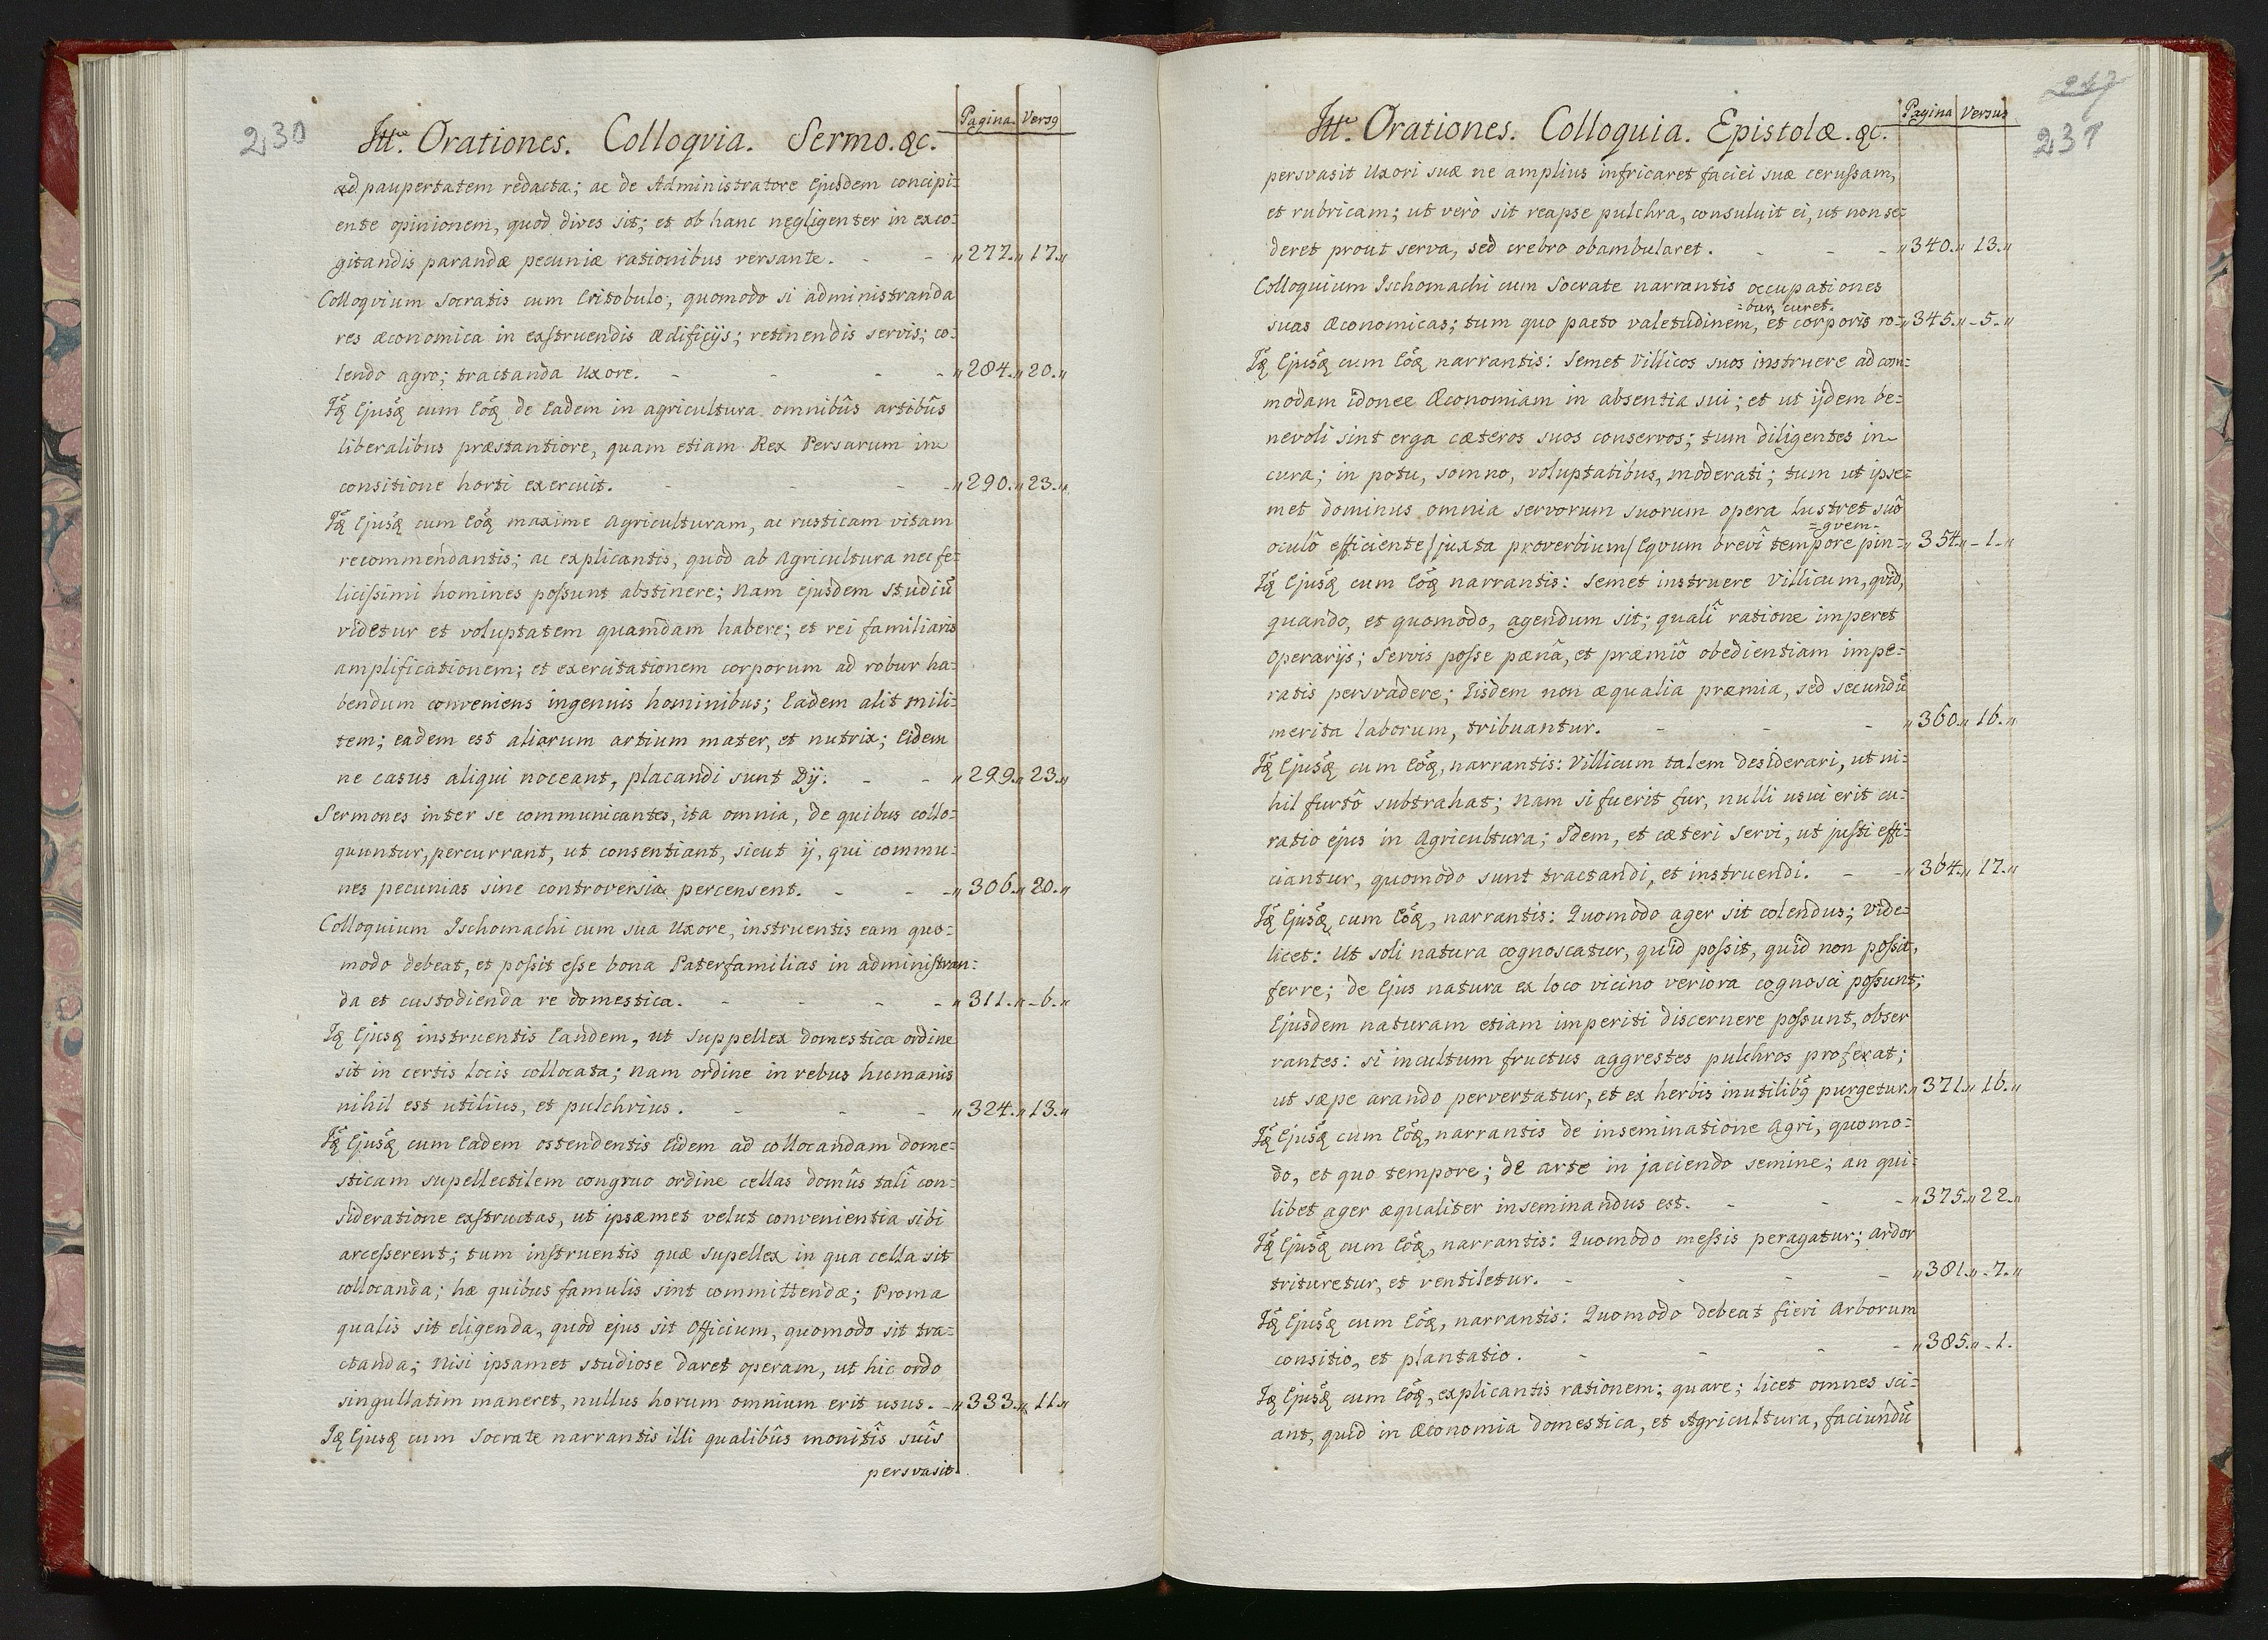 230
Orationes. Colloqvia. Sermo. &c.
Pagina. Vers9
ad paupertatem redacta; ac de Administratore Ejusdem concipi:
ente opinionem, quod dives sit; et ob hanc negligenter in exco:
gitandis parandæ pecuniæ rationibus versante. - - „277.„ 17.„
Colloqvium Socratis cum Critobulo, quomodo si administranda
res œconomica in exstruendis ædificijs; retinendis servis; co:
lendo agro; tractanda Uxore. - - - - „284.„ 20.„
Ejusq̃ cum Eoq̃ de Eadem in agricultura omnibûs artibûs
liberalibus præstantiore, quam etiam Rex Persarum in
consitione horti exercuit. - - - - „290.„ 23.„
Ejusq̃ cum Eoq̃ maxime Agriculturam, ac rusticam vitam
recommendantis; ac explicantis, quod ab Agricultura nec fe:
licissimi homines possunt abstinere; Nam ejusdem studiũ
videtur et voluptatem quamdam habere; et rei familiaris
amplificationem; et exercitationem corporum ad robur ha:
bendum conveniens ingenuis hominibus; Eadem alit mili:
tem; eadem est aliarum artium mater, et nutrix; Eidem
ne casus aliqui noceant, placandi sunt Dij. - - „299.„ 23.„
Sermones inter se communicantes, ita omnia, de quibus collo:
quuntur, percurrant, ut consentiant, sicut ij, qui commu:
nes pecunias sine controversia percensent. - - - „306.„ 20.„
Colloquium Ischomachi cum sua Uxore, instruentis eam quo:
modo debeat, et possit esse bona Paterfamilias in administran:
da et custodienda re domestica. - - - - „311.„ - 6.„
Ejusq̃ instruentis Eandem, ut Suppellex domestica ordine
sit in certis locis collocata; Nam ordine in rebus humanis
nihil est utilius, et pulchrius. - - - „324.„ 13.„
Ejusq̃ cum Eadem ostendentis Eidem ad collocandam dome:
sticam supellectilem congruo ordine cellas domûs talî con:
sideratione exstructas, ut ipsæmet velut convenientia sibi
arcesserent; tum instruentis quæ supellex in qua cella sit
collocanda; hæ quibus famulis sint committendæ; Proma
qualis sit eligenda, quod ejus sit Officium, quomodo sit tra:
ctanda; Nisi ipsamet studiose daret operam, ut hic ordo
singullatim maneret, nullus horum omnium erit usus. - „333.„ 11.„
Ejusq̃ cum Socrate narrantis illi qualibûs monitîs suîs
persvasit.
217
231
Orationes. Colloquia. Epistolæ. &c.
Pagina Versus
persvasit Uxori suæ ne amplius infricaret faciei suæ cerussam,
et rubricam; ut verò sit reapse pulchra, consuluit ei, ut non se:
deret prout serva, sed crebro obambularet. - - - „340.„ 13.„
Colloquium Ischomachi cum Socrate narrantis occupationes
=bur, curet.
suas Œconomicas; tum quo pacto valetudinem, et corporis ro: „345.„ - 5.„
Ejusq̃ cum Eoq̃ narrantis: Semet Villicos suos instruere ad com:
modam idonee Œconomiam in absentia sui; et ut ijdem be:
nevoli sint erga cæteros suos conservos; tum diligentes in
cura; in potu, somno, voluptatibus, moderati; tum ut ipse:
met dominus omnia servorum suorum opera lustret suô
=gvem.
oculô efficiente/ juxta proverbium/ Eqvum brevî tempore pin: „354.„ - 1.„
Ejusq̃ cum Eoq̃ narrantis: Semet instruere Villicum, qvid,
quando, et quomodo, agendum sit; qualî ratione imperet
operarijs; Servis posse pænâ, et præmiô obedientiam impe:
ratis persvadere; Eisdem non æqualia præmia, sed secundũ
merita laborum, tribuantur. - - - „360.„ 16.„
Ejusq̃ cum Eoq̃, narrantis: Villicum talem desiderari, ut ni:
hil furtô subtrahat; Nam si fuerit fur, nulli usui erit cu:
ratio ejus in Agricultura; Idem, et cæteri servi, ut justi effi:
ciantur, quomodo sunt tractandi, et instruendi. - - „364.„ 17.„
Ejusq̃ cum Eoq̃, narrantis: Quomodo ager sit colendus; Vide:
licet: Ut soli natura cognoscatur, quid possit, quid non possit,
ferre; de Ejus natura ex loco vicino veriora cognosci possunt;
Ejusdem naturam etiam imperiti discernere possunt, obser
vantes: si incultum fructus aggrestes pulchros proferat;
ut sæpe arando pervertatur, et ex herbis inutilib9 purgetur. „371.„ 16.„
Ejusq̃ cum Eoq̃, narrantis de inseminatione Agri, quomo:
do, et quo tempore; de arte in jaciendo semine; an qui:
libet ager æqualiter inseminandus est. - - - „375.„ 22.„
Ejusq̃ cum Eoq̃, narrantis: Quomodo messis peragatur; ardor
trituretur, et ventiletur. - - - - „381.„ - 7.„
Ejusq̃ cum Eoq̃, narrantis: Quomodo debeat fieri Arborum
consitio, et plantatio. - - - - „385.„ - 1.
Ejusq̃ cum Eoq̃, explicantis rationem; quare; licet omnes sci:
ant, quid in Œconomia domestica, et Agricultura, faciundũ